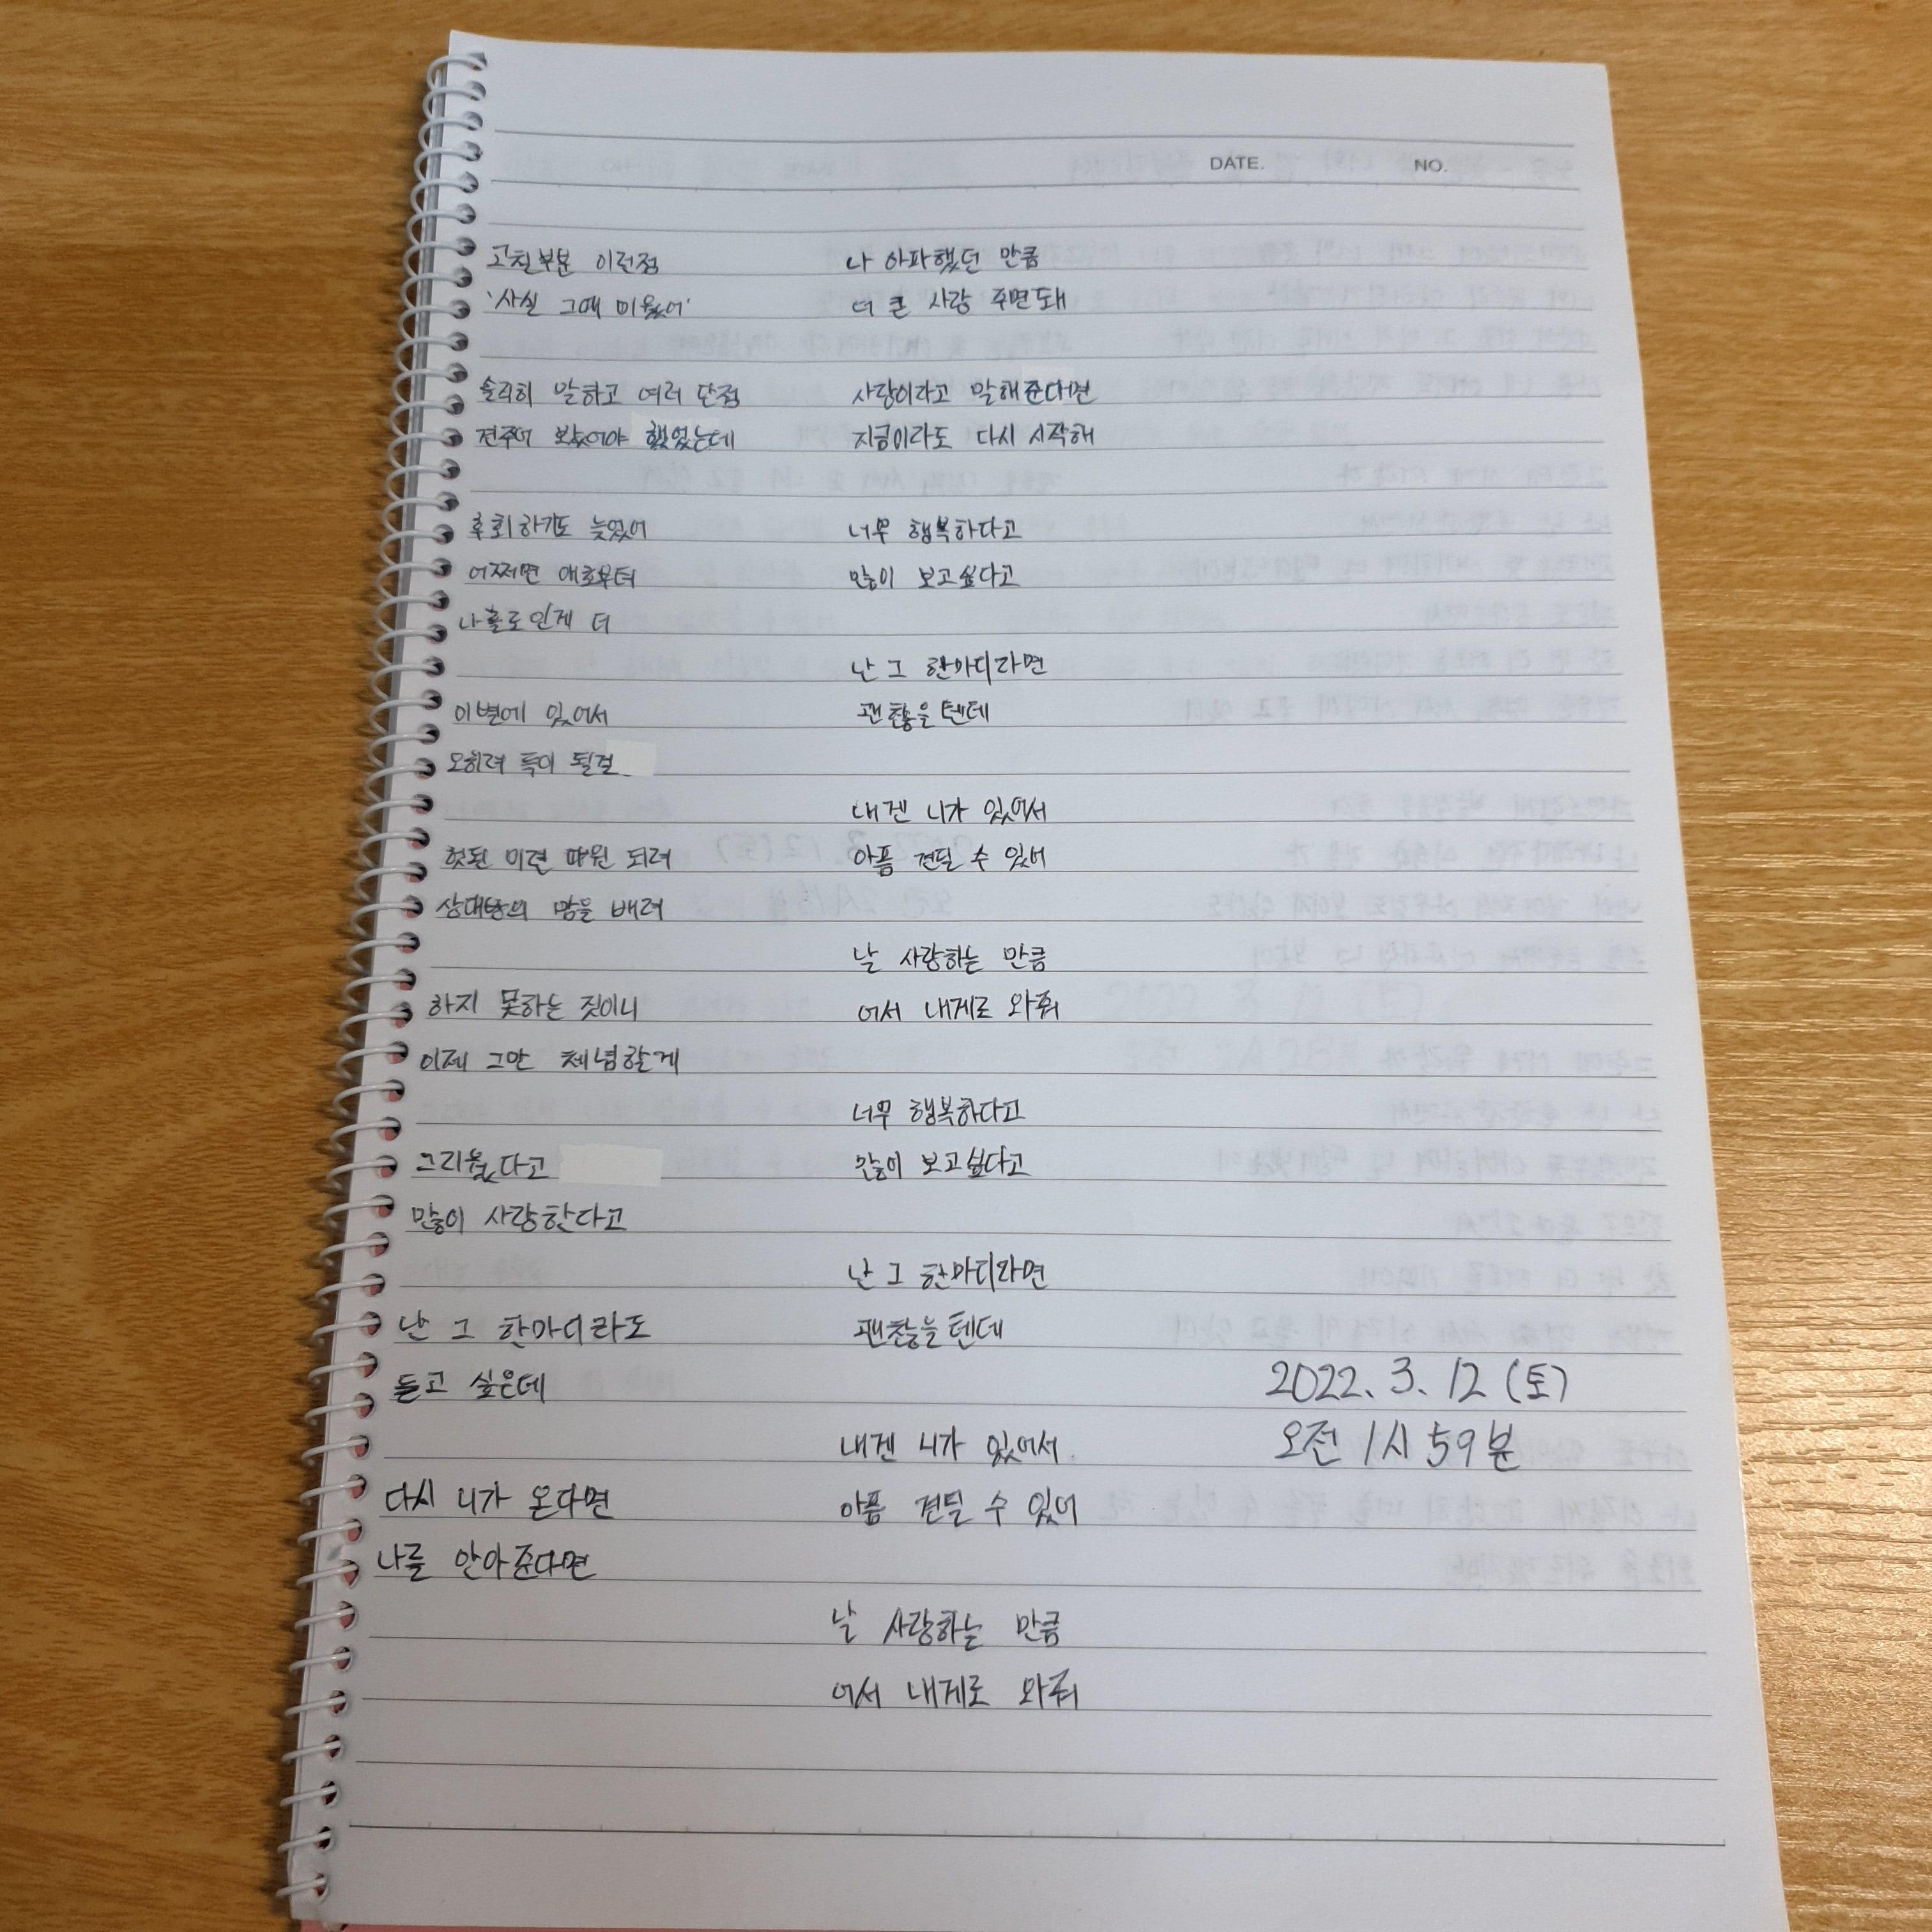 DATE.
NO.
고칠부분 이런점
'사실 그때 미웠어'
솔직히 말하고 여러 단점
전주어 봤어야 했었는데
후회하기도 늦었어
어쩌면 애초부터
나홀로인게 더
이별에 있어서
오히려 득이 될걸
헛된 미련 따윈 되려
상대방의 맘을 배려
하지 못하는 짓이니
이제 그만 체념할게
그리웠다고
많이 사랑한다고
난 그 한마디라도
듣고 싶은데
다시 니가 온다면
나를 안아준다면
나 아파했던 만큼
더 큰 사랑 주면돼
사랑이라고 말해준다면
지금이라도 다시 시작해
너무 행복하다고
많이 보고싶다고
난 그 한마디라면
괜찮을텐데
내겐 니가 있어서
아픔 견딜 수 있어
날 사랑하는 만큼
어서 내게로 와줘
너무 행복하다고
많이 보고싶다고
난 그 한마디라면
괜찮을텐데
내겐 니가 있어서
아픔 견딜 수 있어
날 사랑하는 만큼
어서 내게로 와줘
2022. 3. 12 (토)
오전 1시 59분